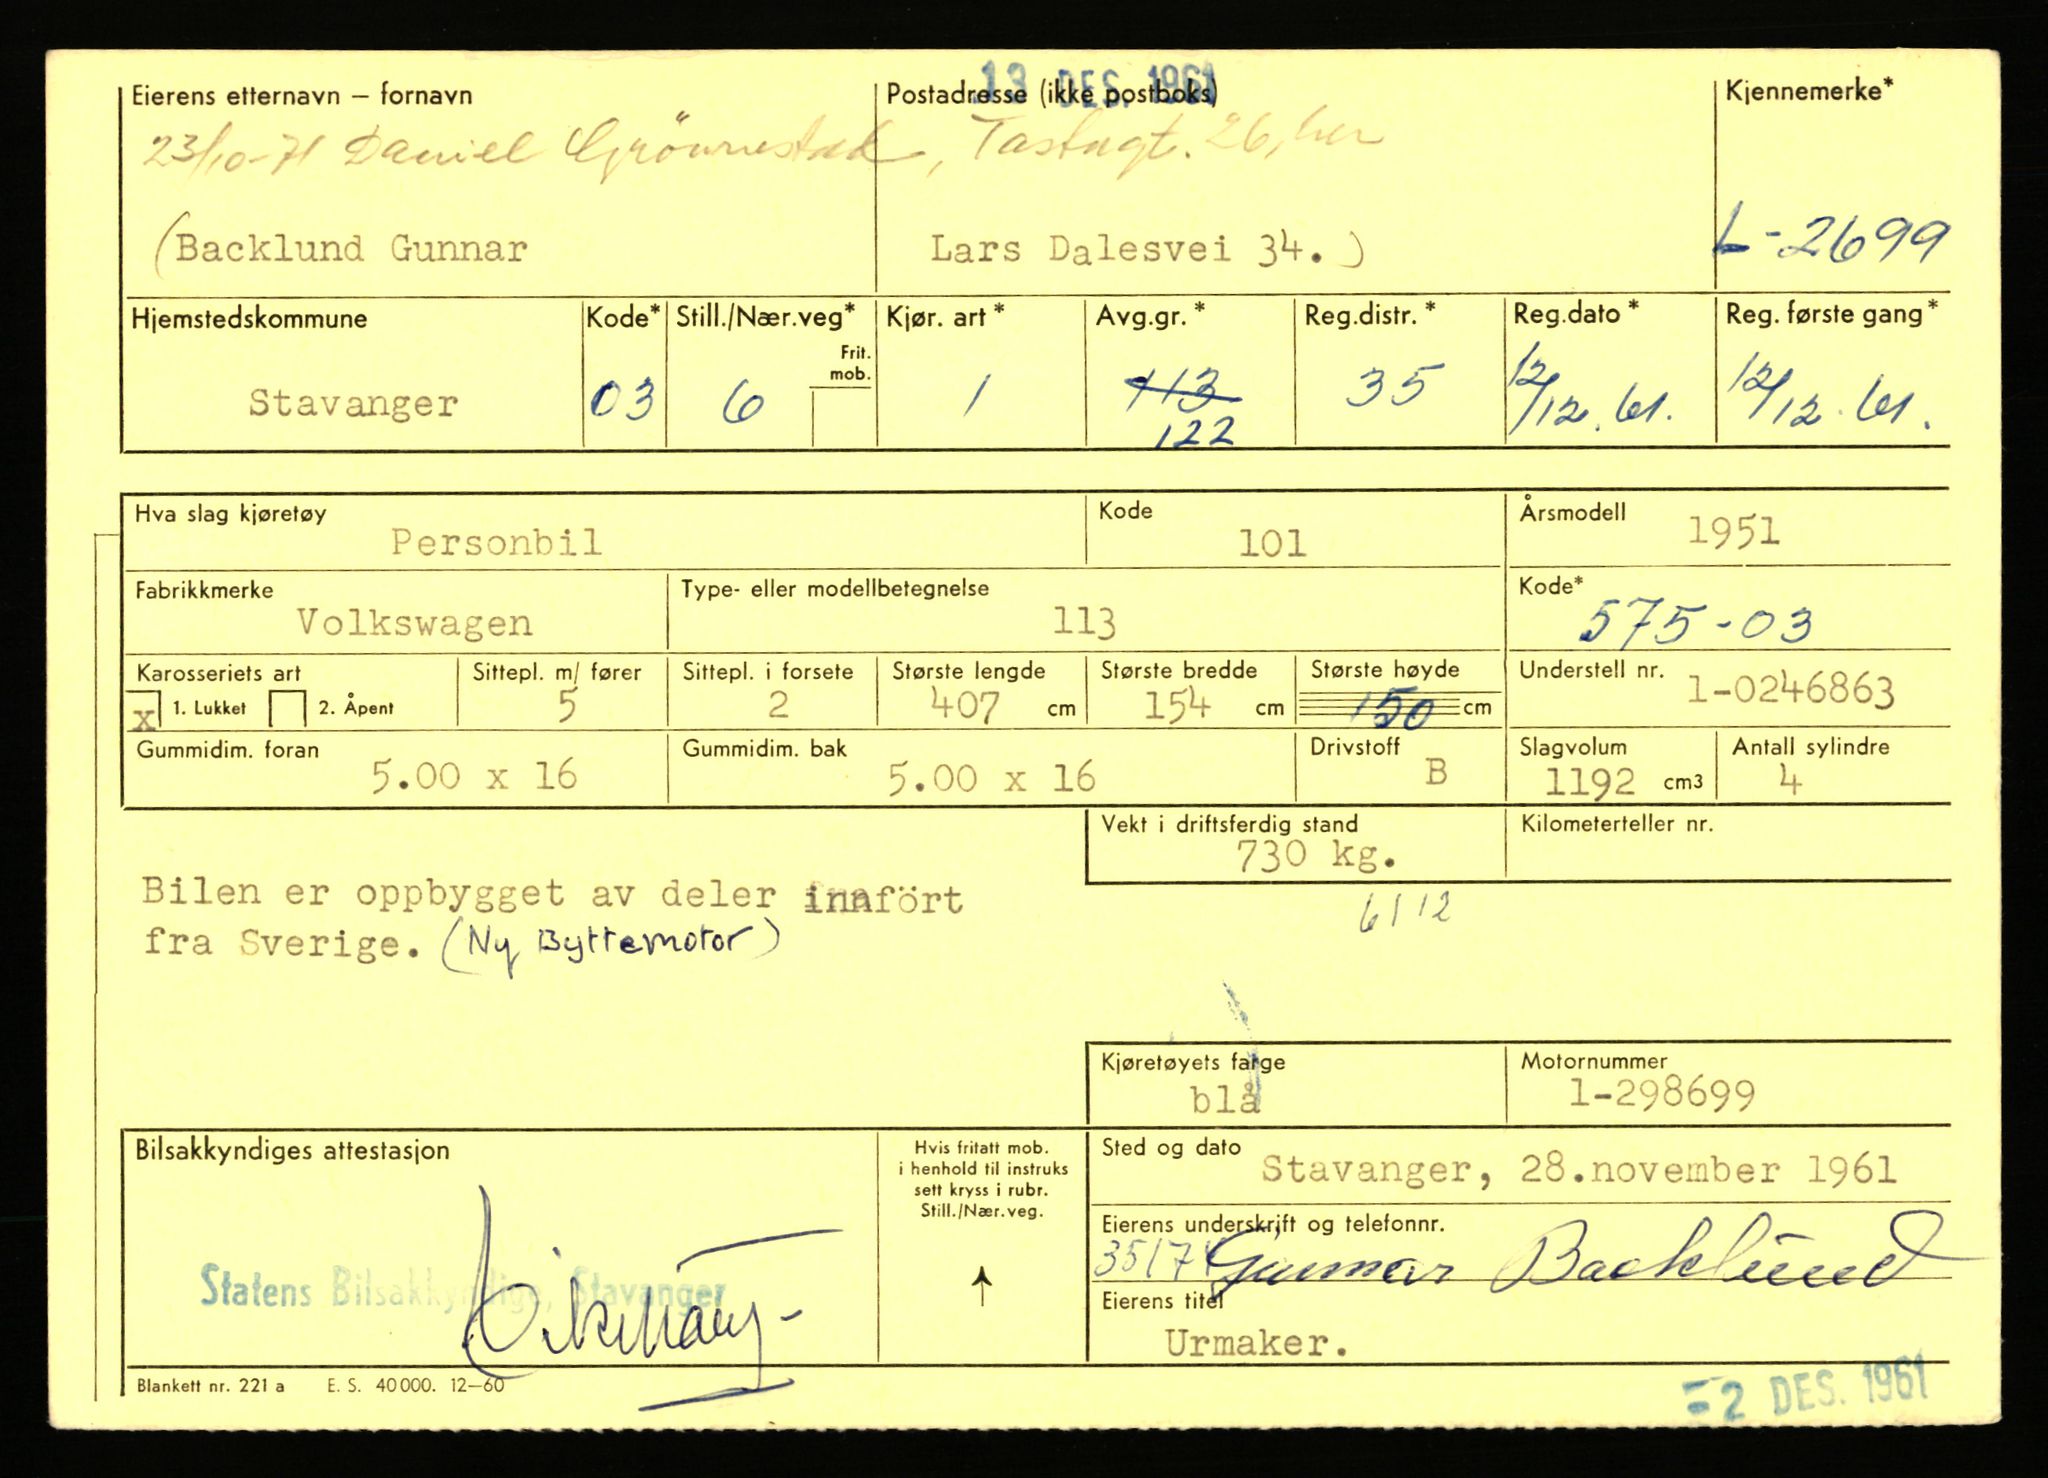 13 DES. 1961
Eierens etternavn – fornavn Postadresse (ikke postboks) Kjennemerke*
23/10-71 Daniel Grönnestad, Tastagt. 26, her
(Backlund Gunnar Lars Dalesvei 34.) L-2699
Hjemstedskommune Kode* Still./Nær.veg* Kjør. art* Avg.gr.* Reg.distr.* Reg.dato* Reg. første gang*
Frit. mob.
Stavanger 03 6 1 113 35 12/12.61. 12/12.61.
122
Hva slag kjøretøy Kode Årsmodell
Personbil 101 1951
Fabrikkmerke Type- eller modellbetegnelse Kode*
Volkswagen 113 575-03
Karosseriets art Sittepl. m/ fører Sittepl. i forsete Største lengde Største bredde Største høyde Understell nr.
x 1. Lukket 2. Åpent 5 2 407 cm 154 cm 150 cm 1-0246863
Gummidim. foran Gummidim. bak Drivstoff Slagvolum Antall sylindre
5.00 x 16 5.00 x 16 B 1192 cm3 4
Vekt i driftsferdig stand Kilometerteller nr.
730 kg.
Bilen er oppbygget av deler innfört
6112
fra Sverige. (Ny Byttemotor)
Kjøretøyets farge Motornummer
blå 1-298699
Bilsakkyndiges attestasjon Hvis fritatt mob. Sted og dato
i henhold til instruks Stavanger, 28.november 1961
sett kryss i rubr.
Still./Nær.veg.
Eierens underskrift og telefonnr.
Gunnar Backlund
Statens Bilsakkyndige, Stavanger
Eierens titel
Urmaker.
Blankett nr. 221 a E. S. 40000. 12–60
-2 DES. 1961